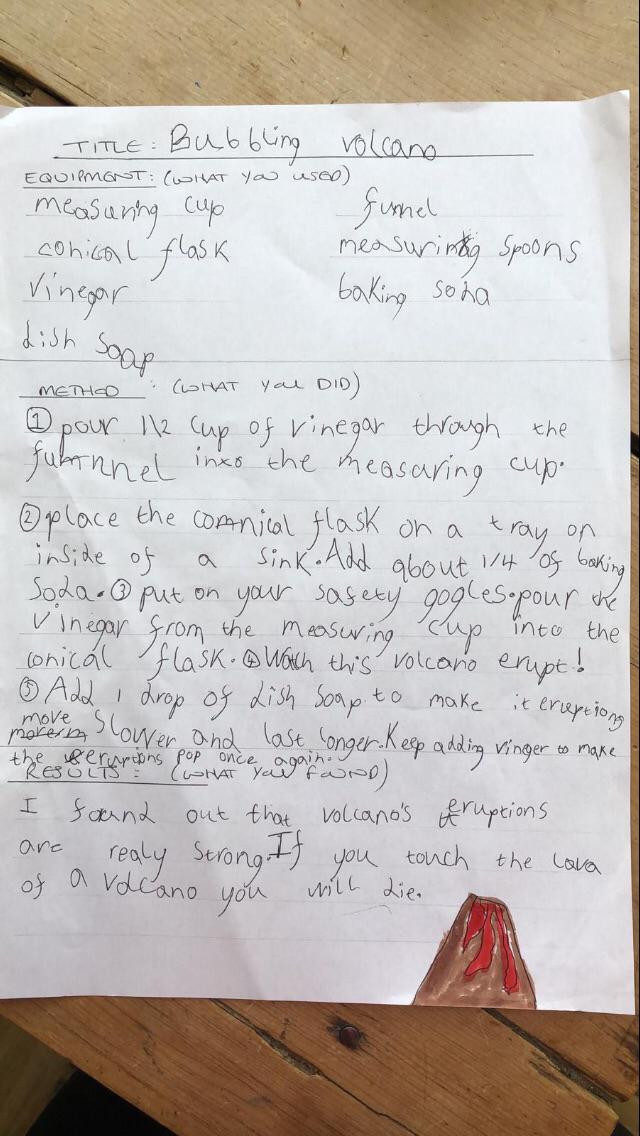 TITLE: Bubbling volcano
EQUIPMENT: (WHAT YOU USED)
measuring cup funnel
conical flask measuring spoons
Vinegar baking soda
dish soap
METHOD : (WHAT YOU DID)
① pour 1\2 cup of vinegar through the
funnel into the measuring cup.
② place the conical flask on a tray on
inside of a sink. Add about 1/4 of baking
soda. ③ put on your safety gogles. pour the
Vinegar from the measuring cup into the
conical flask. ④ Watch this volcano erupt!
⑤ Add 1 drop of dish soap to make it eruptiong
move
slower and last longer. Keep adding vinger to make
the eruptions pop once again.
RESULTS : (WHAT YOU FOUND)
I found out that volcano's eruptions
are realy strong. If you touch the lava
of a volcano you will die.